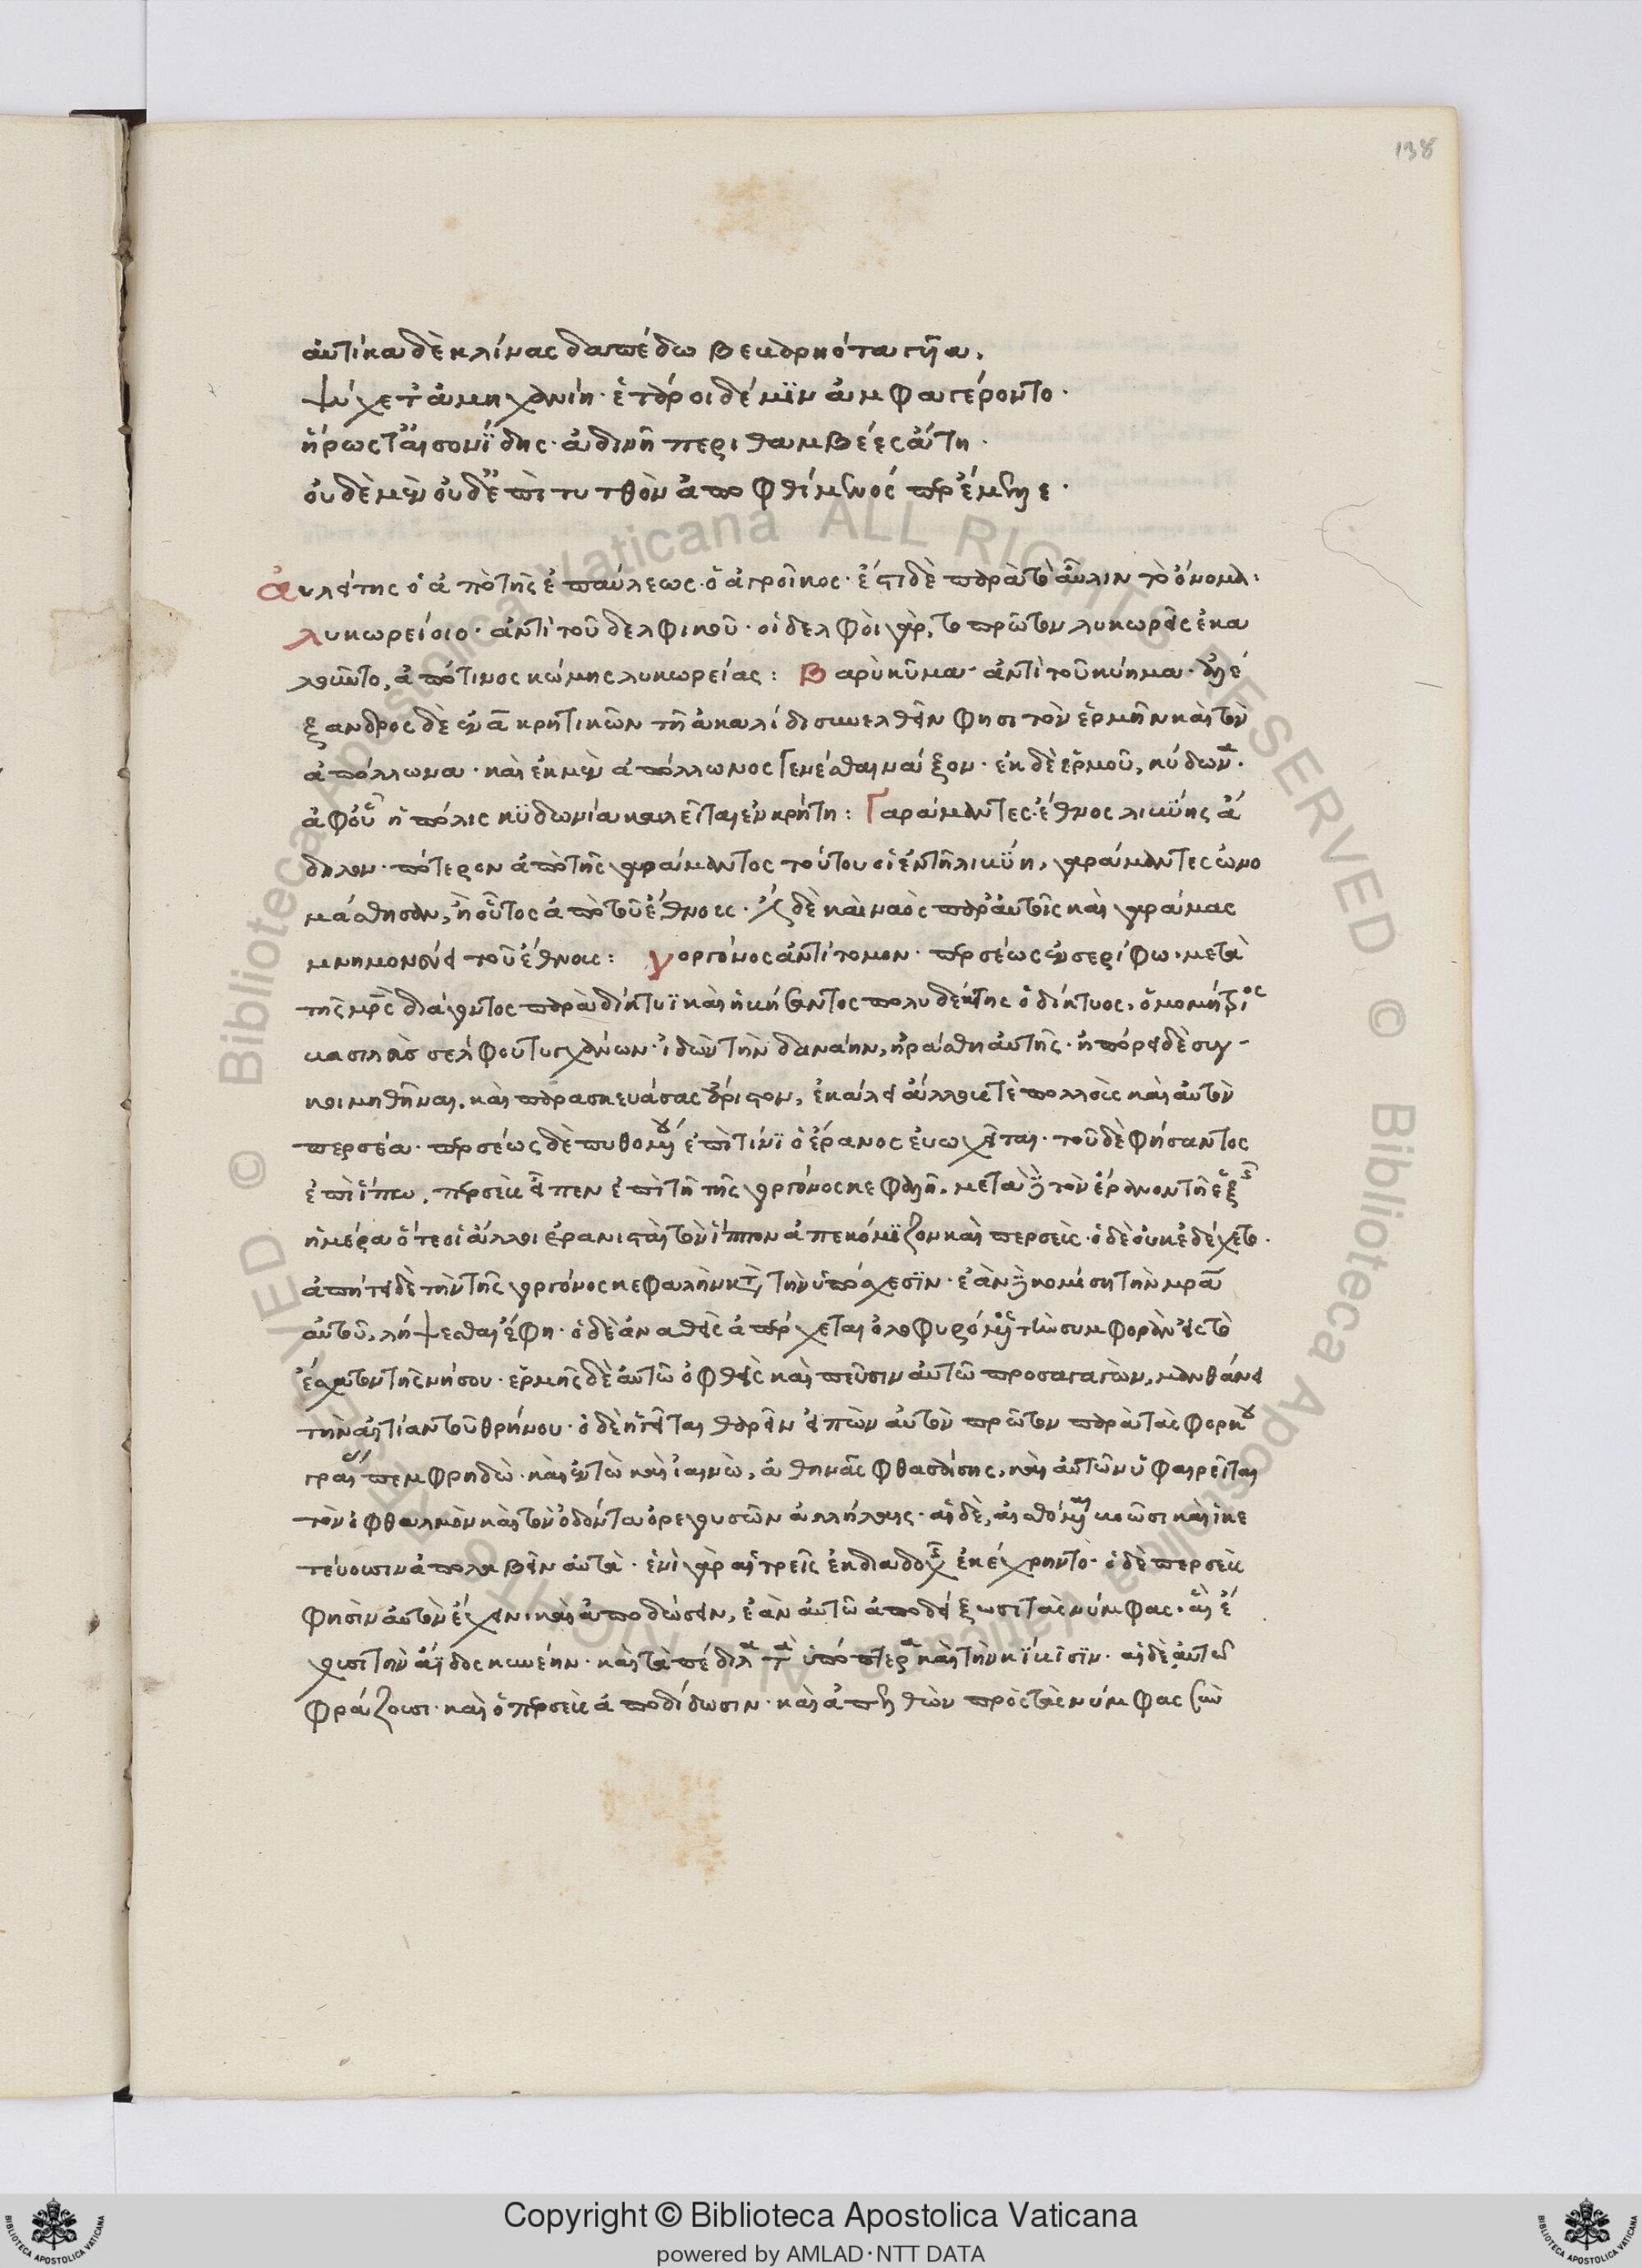 138
αὐτίκα δὲ κλίνας δαπέδω βεβαρηότα γυῖα.
ψύχετ᾽ ἀμηχανίη· ἕταροι δέ μϊν ἀμφαγέροντο·
ἥρως τ᾽ αἰσονίδης· ἀδινῆ περιθαμβέες ἄτη·
οὐδὲ μὲν οὐδ᾽ ἐπὶ τυτθὸν ἀποφθίμενός περ ἔμελλε·
Αὐλείτης ὁ ἀπὸ τῆς ἐπαύλεως· ὁ ἄγροικος· ἔστι δὲ παρὰ τὸ αὖλιν τὸ ὄνομα:
Λυκωρείοιο· ἀντὶ τοῦ δελφικοῦ· οἱ δελφοὶ γὰρ, τὸ πρῶτον λυκωρεῖς ἐκα
λοῦντο, ἀπό τινος κώμης λυκωρείας: Βαρὺ κῦμα· ἀντὶ τοῦ κύημα· ἀλέ
ξανδρος δὲ ἐν α κρητικῶν τῆ ἀκαλίδι συνελθεῖν φησι τὸν ἑρμῆν καὶ τὸν
ἀπόλλωνα· καὶ ἐκ μὲν ἀπόλλωνος γενέσθαι νάξον· ἐκ δὲ ἑρμοῦ, κύδωνα·
ἀφ᾽ οὗ ἡ πόλις κϋδωνία καλεῖται ἐν κρήτη: Γαράμαντες· ἔθνος λιβύης ἄ
δηλον· πότερον ἀπὸ τῆς γαράμαντος τούτου οἱ ἐν τῆ λιβύη, γαράμαντες ὠνο
μάσθησαν, ἢ οὗτος ἀπὸ τοῦ ἔθνους· δὲ καὶ ναὸς παρ᾽ αὐτοῖς καὶ γαράμας
μνημονεύει τοῦ ἔθνους: Γοργόνος ἀντίτομον· περσέως ἐν σερίφω μετὰ
τῆς μρς διάγοντος παρὰ δίκτυϊ καὶ ἡβήσαντος πολυδέκτης ὁ δίκτυος, ὁμομήτριος
βασιλεὺς σελφου τυγχάνων· ἰδὼν τὴν δανάην, ἠράσθη αὐτῆς· ἠπόρει δὲ συγ-
κοιμηθῆναι. καὶ παρασκευάσας ἄριστον, ἐκάλει ἄλλους τὲ πολλοὺς καὶ αὐτὸν
περσέα· περσέως δὲ πυθομένου ἐπὶ τίνϊ ὁ ἔρανος εὐωχεῖται· τοῦ δὲ φήσαντος
ἐπὶ ἵππω, περσεὺς εἶπεν ἐπὶ τῆ τῆς γοργόνος κεφαλῆ. μετὰ τὸν ἔρανον τῆ ἑξῆς
ἡμέρα ὅτε οἱ ἄλλοι ἐρανισταὶ τὸν ἵππον ἀπεκόμϊζον καὶ περσεὺς· ὁ δὲ οὐκ ἐδέχετο·
ἀπήτει δὲ τὴν τῆς γοργόνος κεφαλὴν κατὰ τὴν ὑπόσχεσϊν· ἐὰν μὴ κομίση τὴν μρα
αὐτοῦ, λήψεσθαι ἔφη· ὁ δὲ ἀνιαθεὶς ἀπέρχεται ὀλοφυρόμενος τὴν συμφορὰν εἰς τὸ
ἔσχατον τῆς νήσου· ἑρμῆς δὲ αὐτῶ ὀφθεὶς καὶ πεῦσιν αὐτῶ προσαγαγὼν, μανθάνει
τὴν αἰτίαν τοῦ θρήνου· ὁ δὲ ἡγεῖται θαρρεῖν εἰπὼν αὐτὸν πρῶτον παρὰ τὰς φορκου
γραίας πεμφρηδὼ· καὶ ἐνυὼ καὶ ἰαινὼ, ἀθηνᾶς φθασάσης, καὶ αὐτῶν ὑφαιρεῖται
τὸν ὀφθαλμὸν καὶ τὸν ὀδόντα ὀρεγουσῶν ἀλλήλαις· αἱ δὲ, αἰσθόμεναι βοῶσι καὶ ἱκε
τεύουσιν ἀπολαβεῖν αὐτὰ· ἑνὶ γὰρ αἱ τρεῖς ἐκ διαδοχῆς ἐκέχρηντο· ὁ δὲ περσεὺς
φησὶν αὐτὸν ἔχειν· καὶ ἀποδώσειν, ἐὰν αὐτῶ ἀποδείξωσι τὰς νύμφας· αἳ ἔ
χουσι τὴν ἄϊδος κυνέην· καὶ τὰ πέδιλα τὰ ὑπόπτερα καὶ τὴν κίβϊσϊν· αἱ δὲ αὐτῶ
φράζουσι· καὶ ὁ περσεὺς ἀποδίδωσιν· καὶ ἀπελθὼν πρὸς τὰς νύμφας σὺν
Copyright © Biblioteca Apostolica Vaticana
powered by AMLAD·NTT DATA